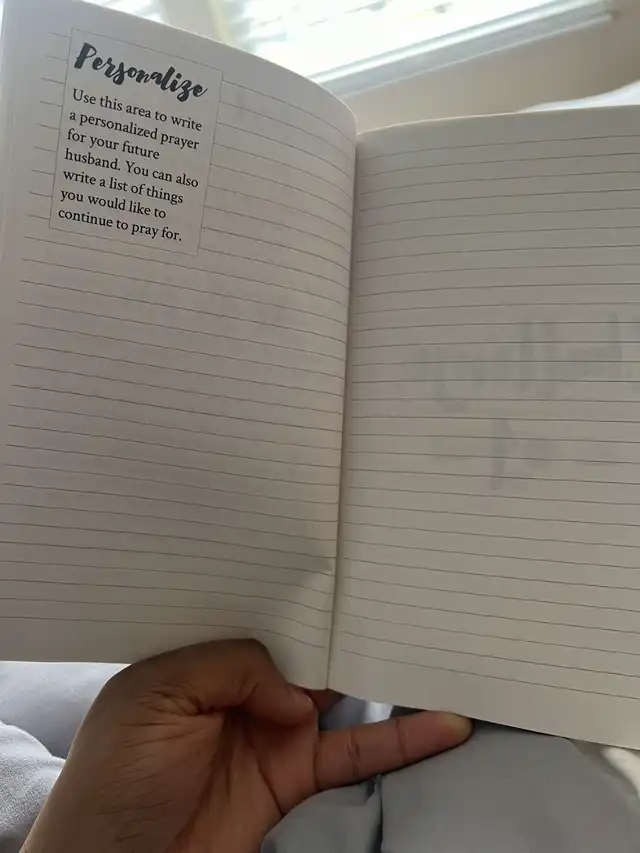 Personalize
Use this area to write
a personalized prayer
for your future
husband. You can also
write a list of things
you would like to
continue to pray for.